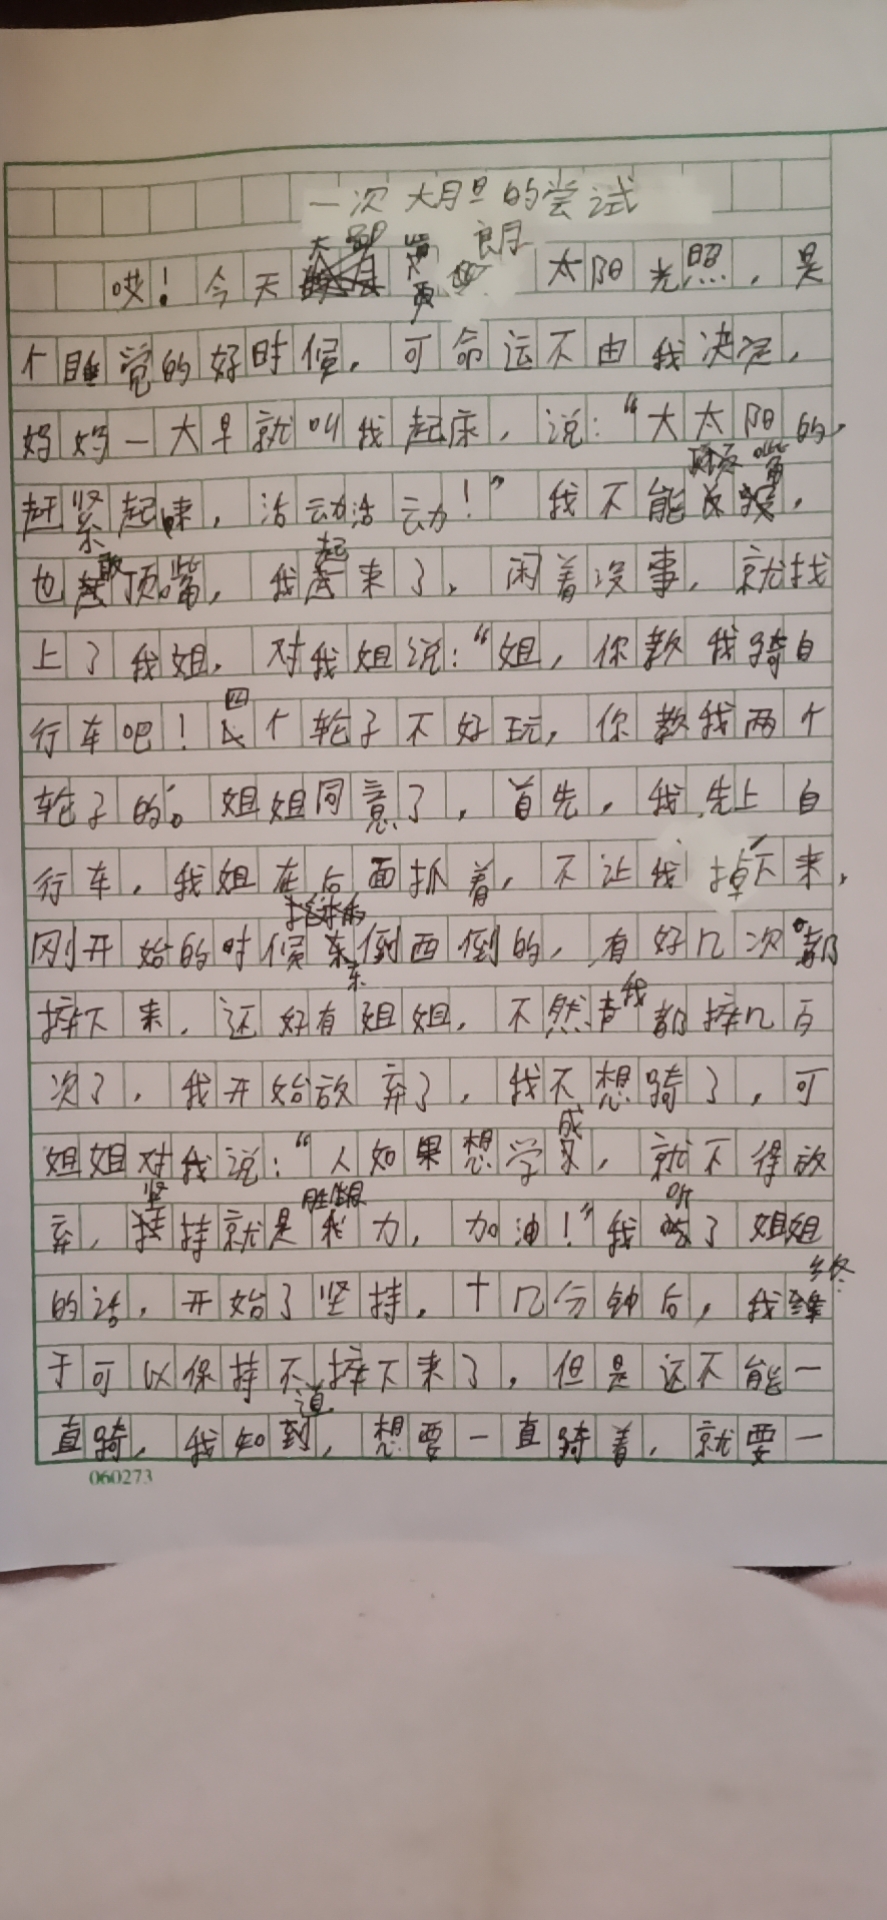 一次大胆的尝试
哎！今天朗太阳光照，是
个睡觉的好时候，可命运不由我决定，
妈妈一大早就叫我起床，说：“大太阳的，
赶紧起来，活动活动！”我不能顶嘴，
也敢顶嘴，我起来了，闲着没事，就找
上了我姐，对我姐说：“姐，你教我骑自
行车吧！四个轮子不好玩，你教我两个
轮子的。”姐姐同意了，首先，我先上自
行车，我姐在后面抓着，不让我掉下来，
刚开始的时候东倒西倒的，有好几次都
摔下来，还好有姐姐，不然我都摔几百
次了，我开始放弃了，我不想骑了，可
姐姐对我说：“人如果想学成，就不得放
弃，坚持就是胜利力，加油！”我听了姐姐
的话，开始了坚持，十几分钟后，我终
于可以保持不摔下来了，但是还不能一
直骑，我知道，想要一直骑着，就要一
060273